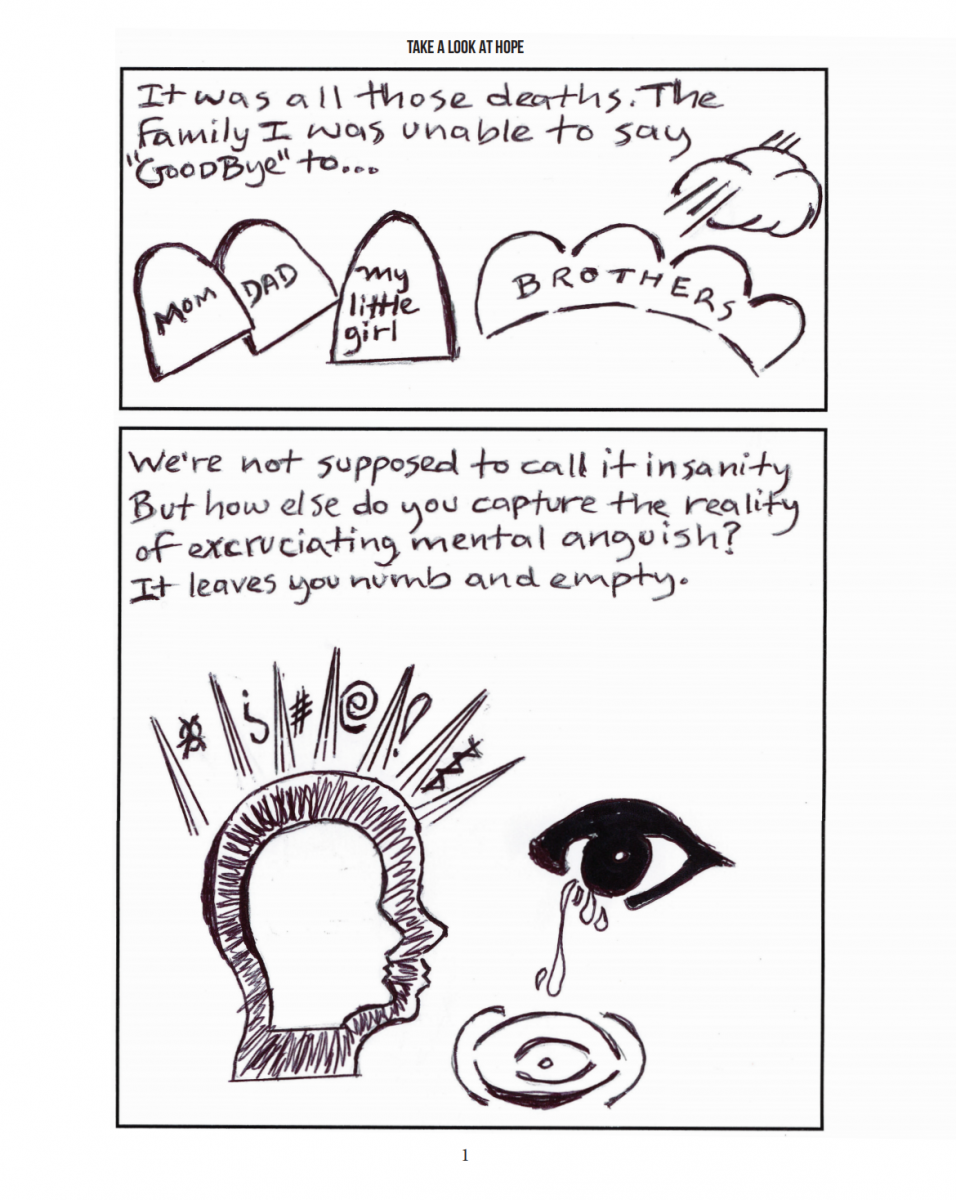 TAKE A LOOK AT HOPE
It was all those deaths. The
Family I was unable to say
"GOODBye" to...
MOM
DAD
my
little
girl
BROTHERS
We're not supposed to call it insanity
But how else do you capture the reality
of excruciating mental anguish?
It leaves you numb and empty.
# @ ?
1